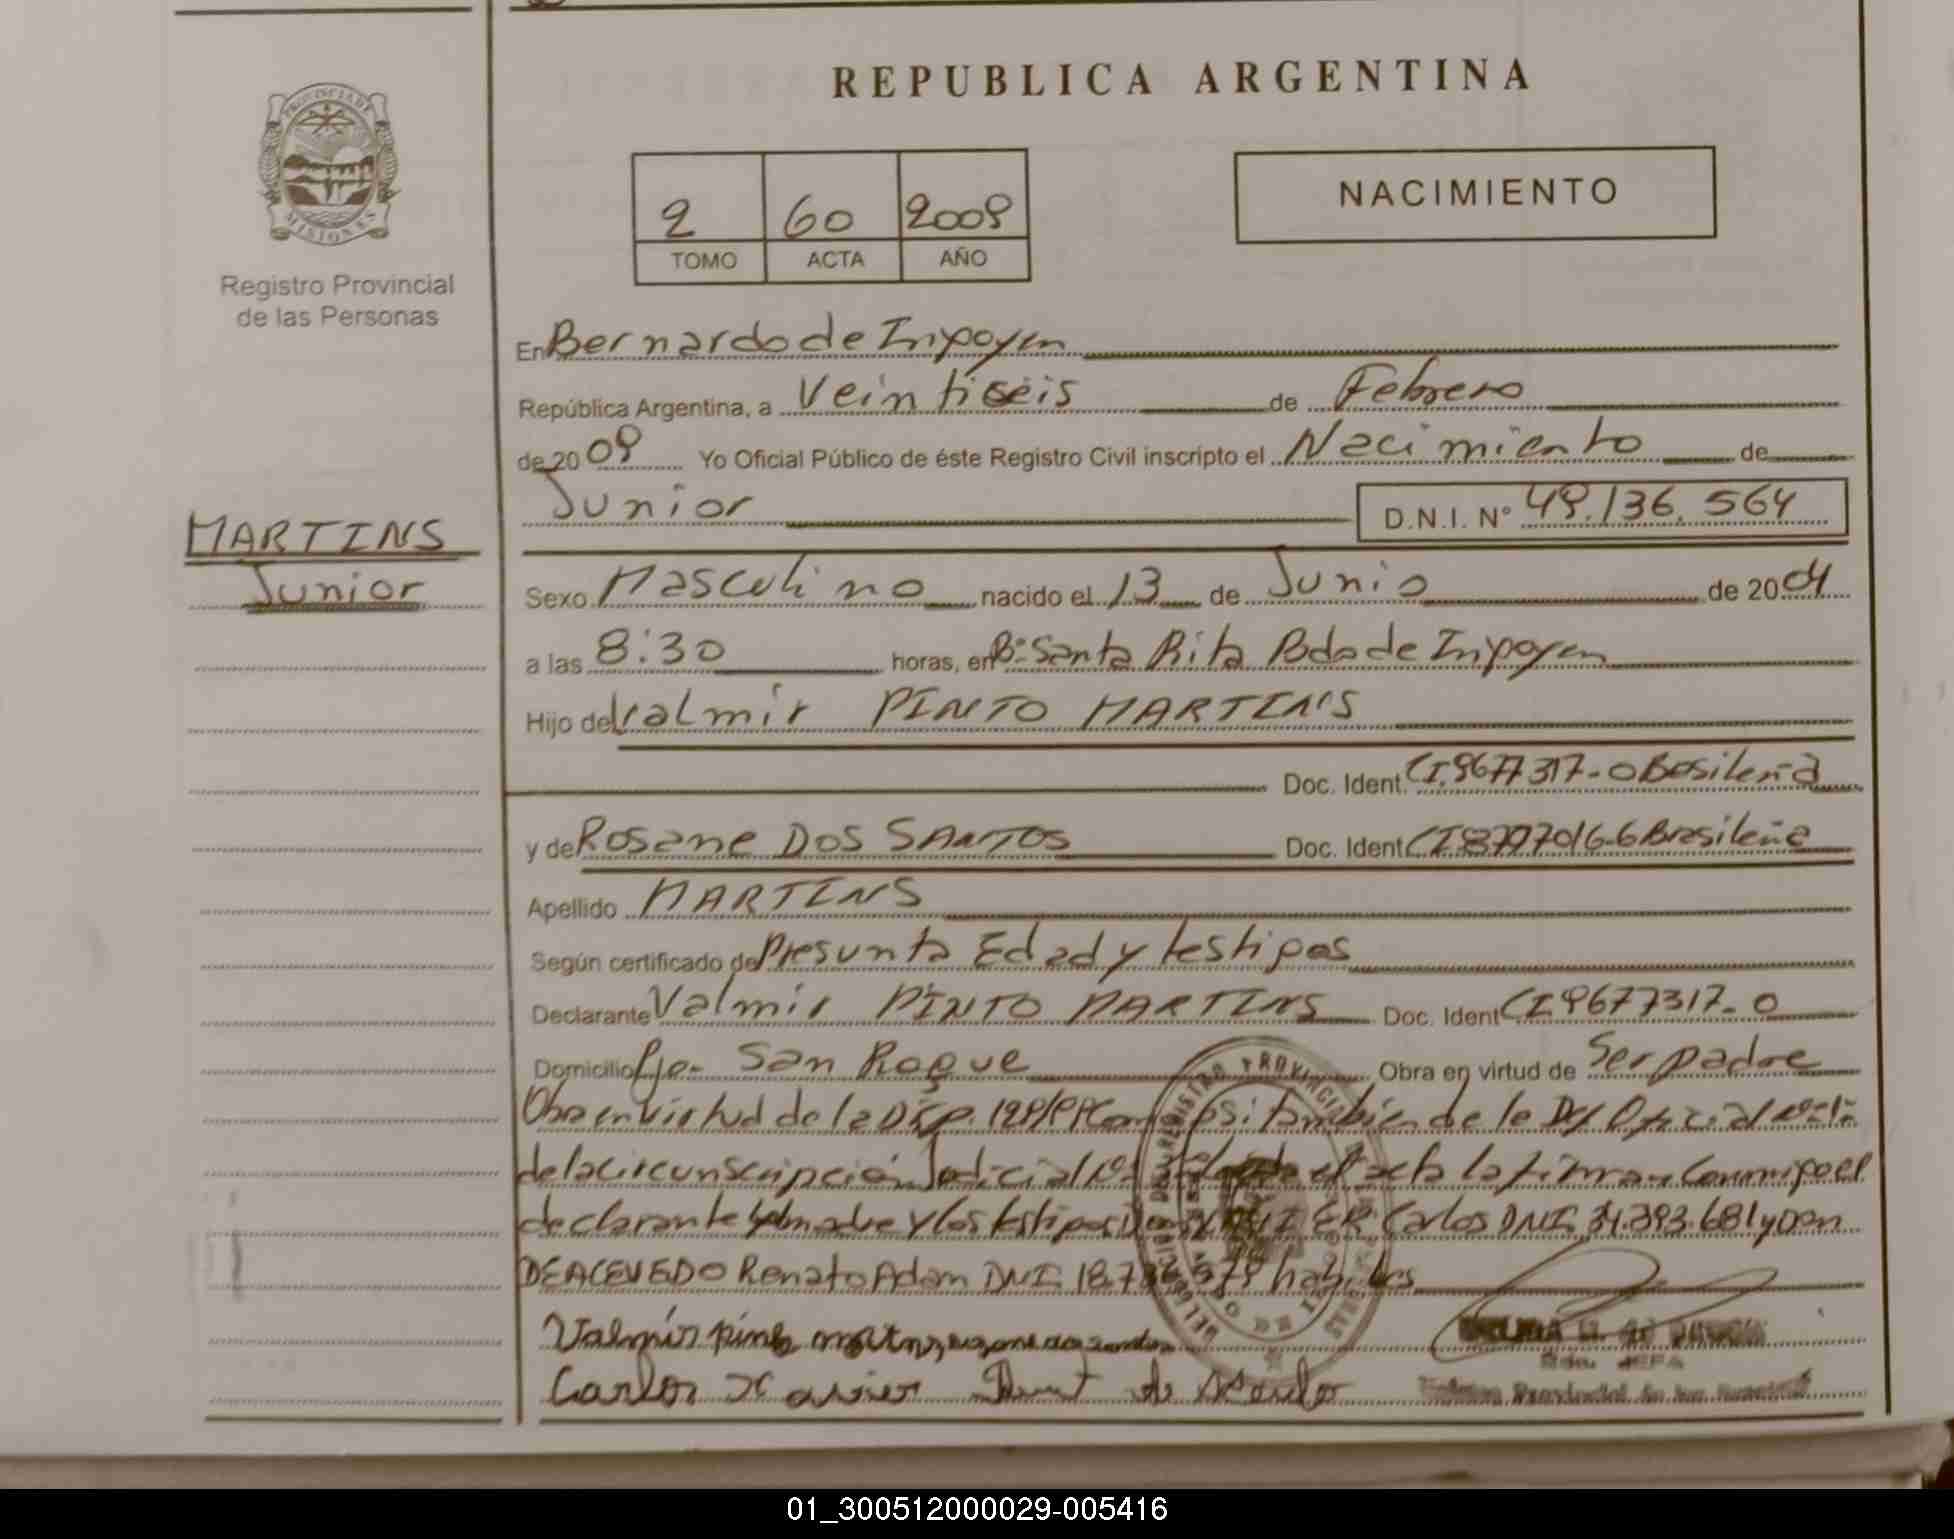 PROVINCIA DE
MISIONES
Registro Provincial
de las Personas
MARTINS
Junior
REPUBLICA ARGENTINA
2 60 2009
TOMO ACTA AÑO
NACIMIENTO
En Bernardo de Irigoyen
República Argentina, a Veintiseis de Febrero
de 2009 Yo Oficial Público de éste Registro Civil inscripto el Nacimiento de
Junior D.N.I. N° 49.136.564
Sexo Masculino nacido el 13 de Junio de 2004
a las 8:30 horas, en B° Santa Rita Bdo de Irigoyen
Hijo de Valmir PINTO MARTINS
Doc. Ident. CI. 9677317-0 Brasileña
y de Rosane DOS SANTOS Doc. Ident CI 8797016-6 Brasileña
Apellido MARTINS
Según certificado de Presunta Edad y testigos
Declarante Valmir PINTO MARTINS Doc. Ident CI 9677317-0
Domicilio Pje- San Roque Obra en virtud de Ser padre
Obra en Virtud de la Disp. también de la
de la Circunscripción Judicial acta la firman Conmigo el
declarante la madre y los testigos Carlos DNI 34.393.681 y Don
DE ACEVEDO Renato Adam DNI 18. habiles
Valmir pinto
Carlos Xavier
01_300512000029-005416